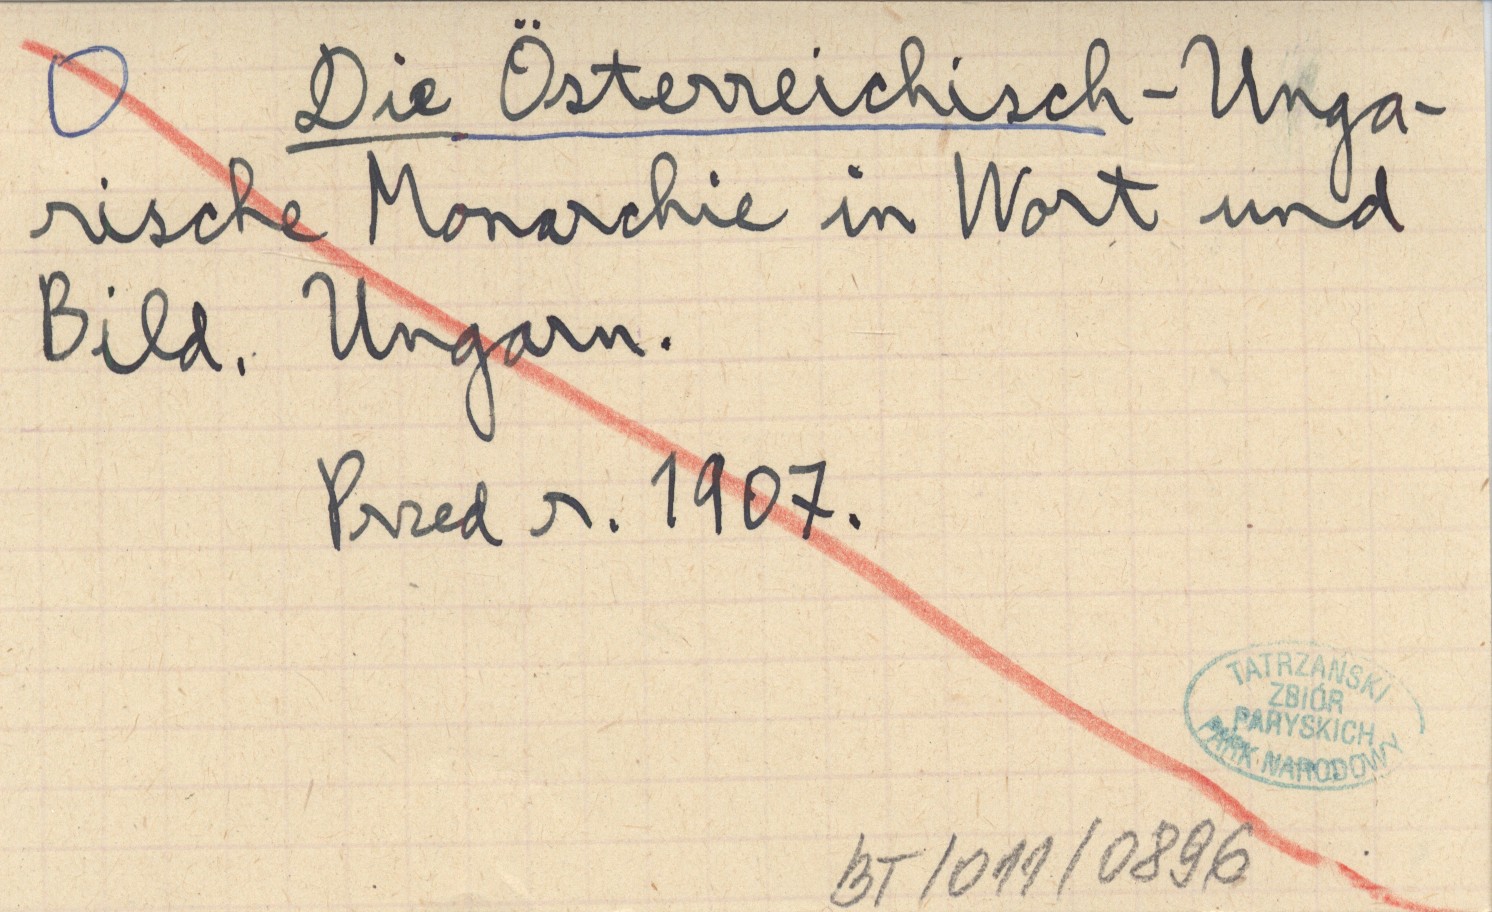 Die Österreichisch-Unga-
rische Monarchie in Wort und
Bild. Ungarn.
Przed r. 1907.
TATRZAŃSKI
ZBIÓR
PARYSKICH
PARK NARODOWY
BT/011/0896